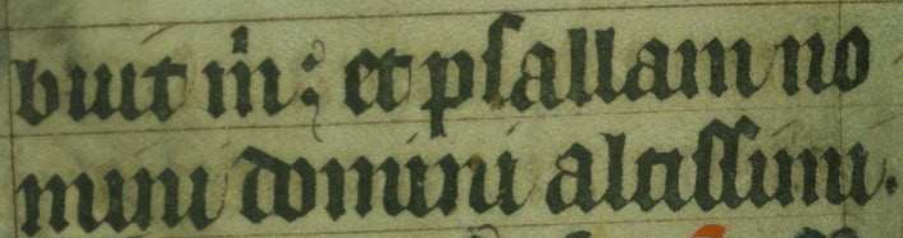 buit m̄; et psallam no
mini domini altissimi.